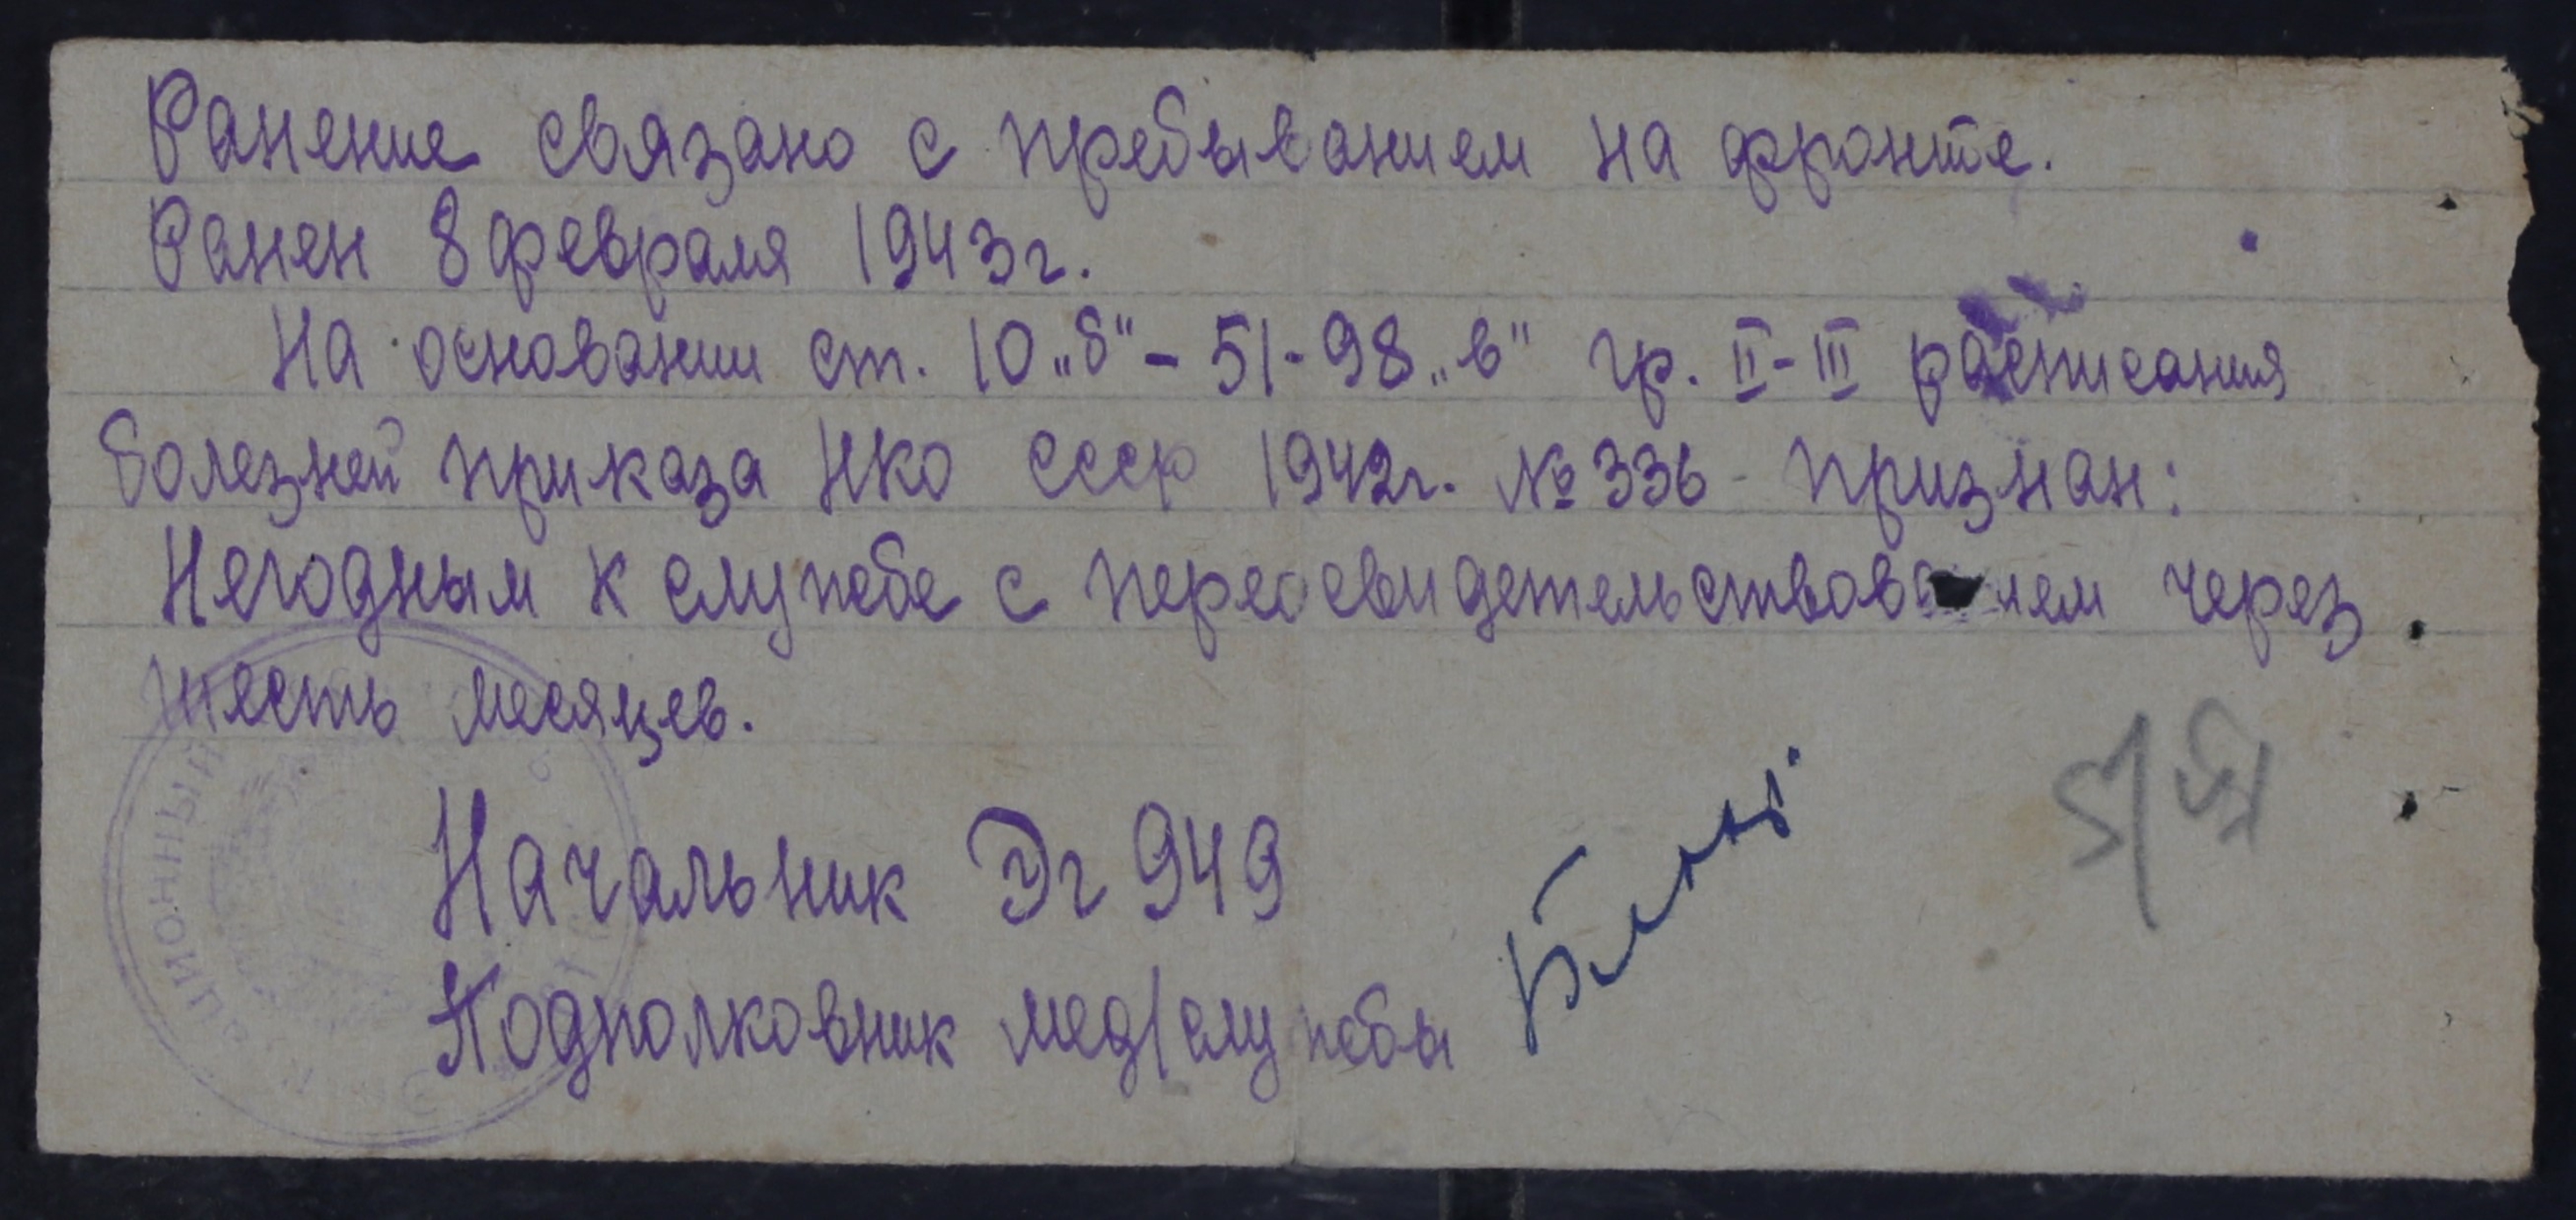 Ранение связано с пребыванием на фронте.
Ранен 8 февраля 1943г.
На основании ст. 10 „б" - 51 - 98 „в" гр. II - III расписания
болезней приказа НКО СССР 1942г. № 336 признан:
Негодным к службе с переосвидетельствованием через
шесть месяцев.
Начальник ЭГ 949
Подполковник мед/службы